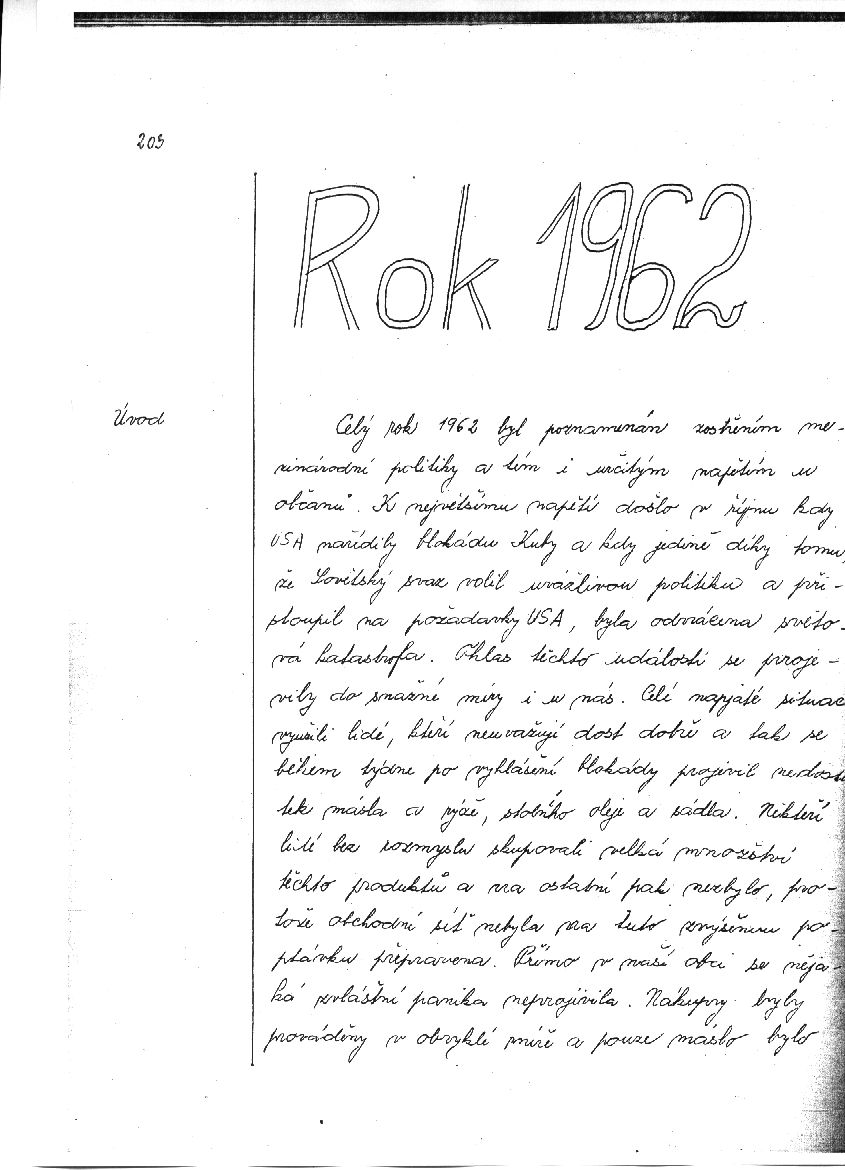 203
Rok 1962
Úvod
Celý rok 1962 byl poznamenán zostřením me-
zinárodní politiky a tím i určitým napětím u
občanů. K největšímu napětí došlo v říjnu kdy
USA nařídily blokádu Kuby a kdy jedině díky tomu,
že Sovětský svaz volil uvážlivou politiku a při-
stoupil na požadavky USA, byla odvrácena světo-
vá katastrofa. Ohlas těchto událostí se proje-
vily do značné míry i u nás. Celé napjaté situac
využili lidé, kteří neuvažují dost dobře a tak se
během týdne po vyhlášení blokády projevil nedosta
tek másla a rýže, stolního oleje a sádla. Někteří
lidé bez rozmyslu skupovali velká množství
těchto produktů a na ostatní pak nezbylo, pro-
tože obchodní síť nebyla na tuto zvýšenou po-
ptávku připravena. Přímo v naší obci se něja-
ká zvláštní panika neprojivila. Nákupy byly
prováděny v obvyklé míře a pouze máslo bylo